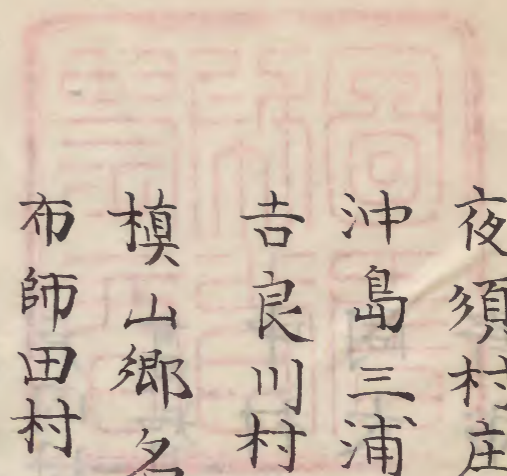 夜須村庄
沖島三浦
吉良川村
槙山郷名
布師田村